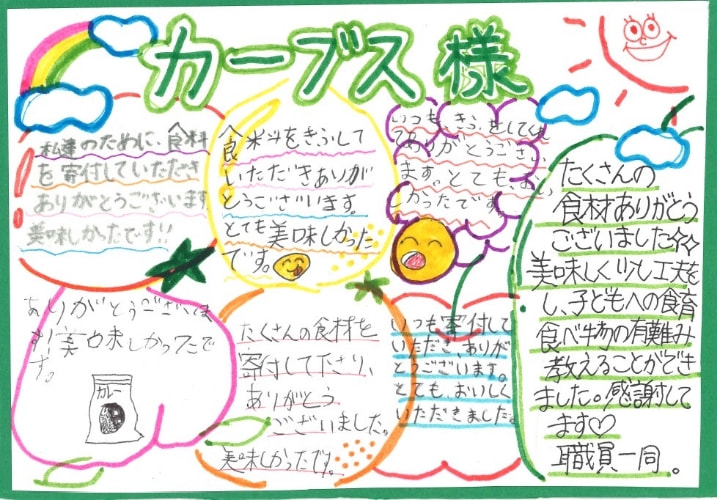 カーブス 様
私達のために、食料
を寄付していただき
ありがとうございます
美味しかったです!!
食料をきふして
いただきありが
とうございます。
とても美味しかった
です。
いつも きふをしてくれ
てありがとうござい
ます。とても、おい
しかったです。
たくさんの
食材ありがとう
ございました☆☆
美味しく少し工夫を
し、子どもへの食育
食べ物の有難み
教えることができ
ました。感謝して
ます♡
職員一同。
ありがとうござい
ます!美味しかったで
す。
カレー
たくさんの食材を
寄付して下さり、
ありがとう
ございました。
美味しかったです。
いつも寄付して
いただき、ありが
とうございます。
とても、おいしく
いただきました。